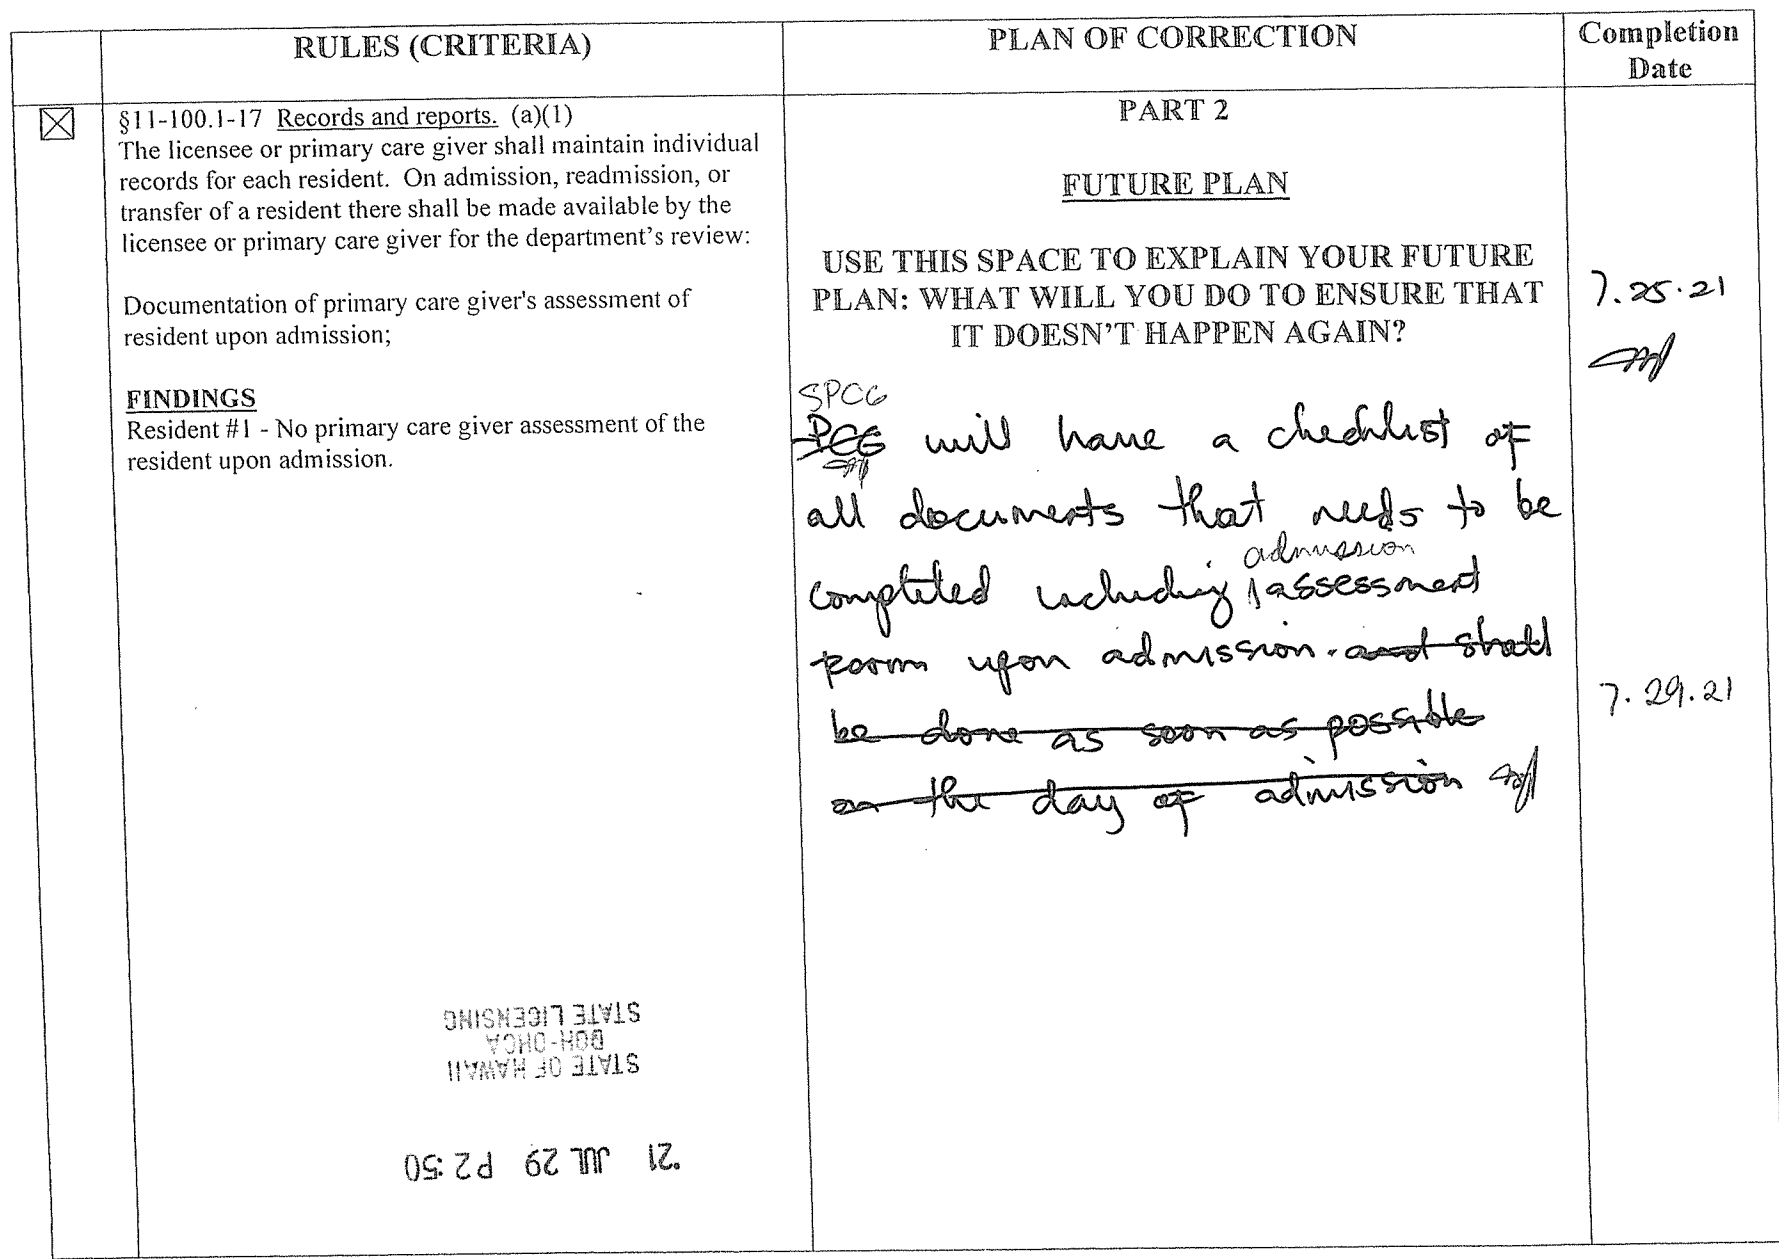 RULES (CRITERIA)
PLAN OF CORRECTION
Completion
Date
§11-100.1-17 Records and reports. (a)(1)
The licensee or primary care giver shall maintain individual
records for each resident. On admission, readmission, or
transfer of a resident there shall be made available by the
licensee or primary care giver for the department's review:
Documentation of primary care giver's assessment of
resident upon admission;
FINDINGS
Resident #1 - No primary care giver assessment of the
resident upon admission.
PART 2
FUTURE PLAN
USE THIS SPACE TO EXPLAIN YOUR FUTURE
PLAN: WHAT WILL YOU DO TO ENSURE THAT
IT DOESN'T HAPPEN AGAIN?
SPCG
PCG will have a checklist of
all documents that needs to be
admission
completed including assessment
form upon admission. and shall
be done as soon as possible
on the day of admission
7.25.21
7.29.21
STATE LICENSING
DOH-OHCA
STATE OF HAWAII
'21 JUL 29 P2:50